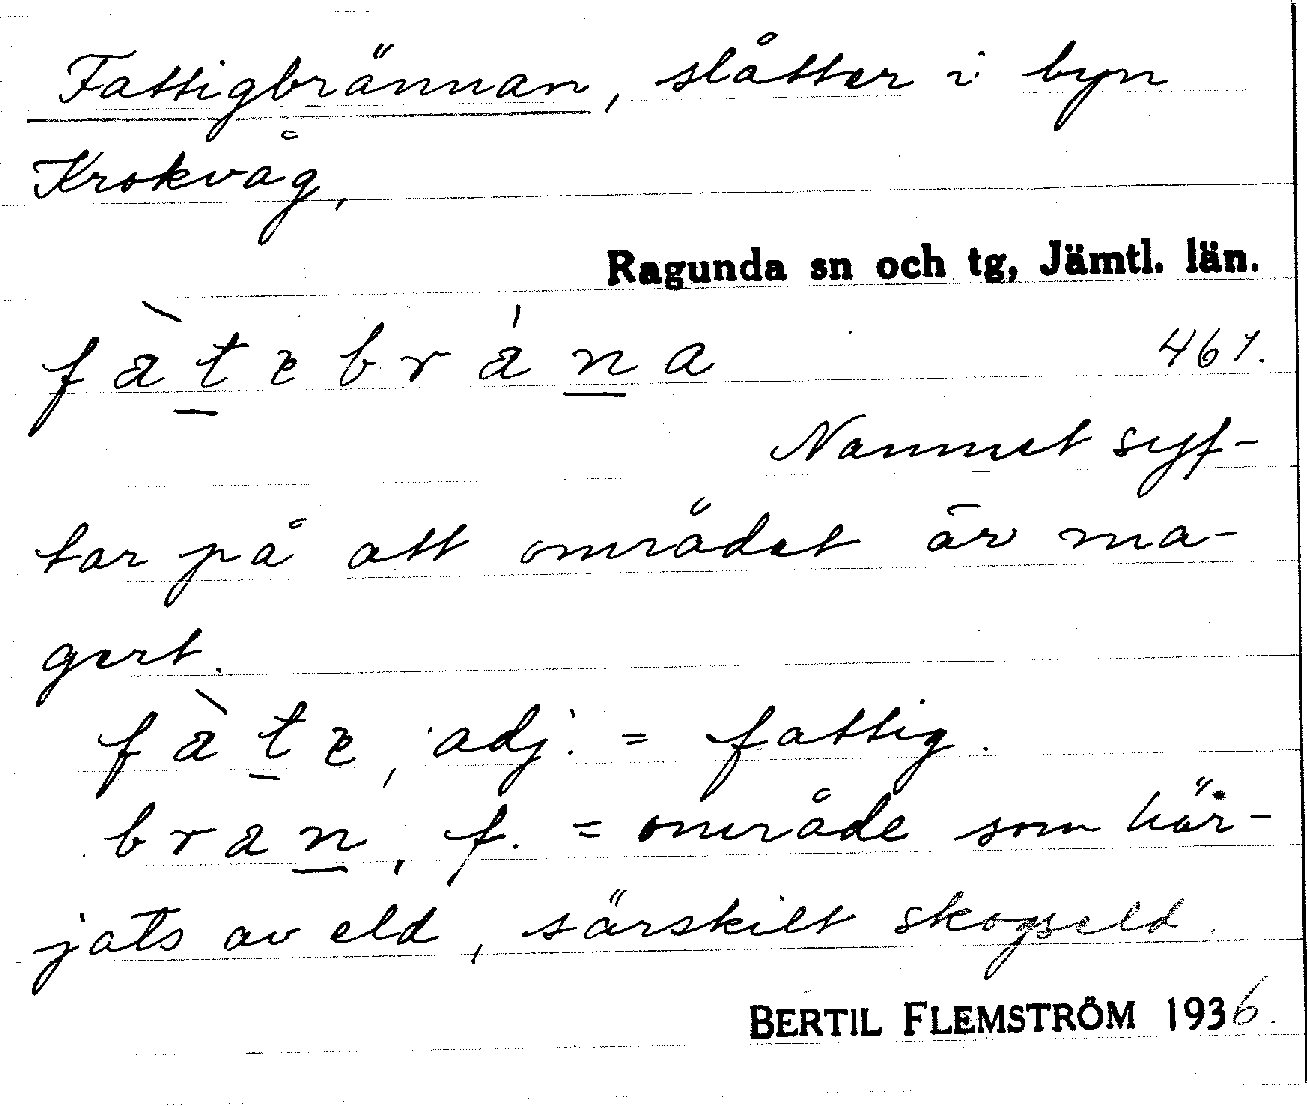 Fattigbrännan, slåtter i byn
Krokvåg,
Ragunda sn och tg, Jämtl. län.
fàtebrána 461.
Namnet syf-
tar på att området är ma-
gert.
fàte, adj. = fattig.
bran, f. = område som här-
jats av eld, särskilt skogseld.
BERTIL FLEMSTRÖM 1936.